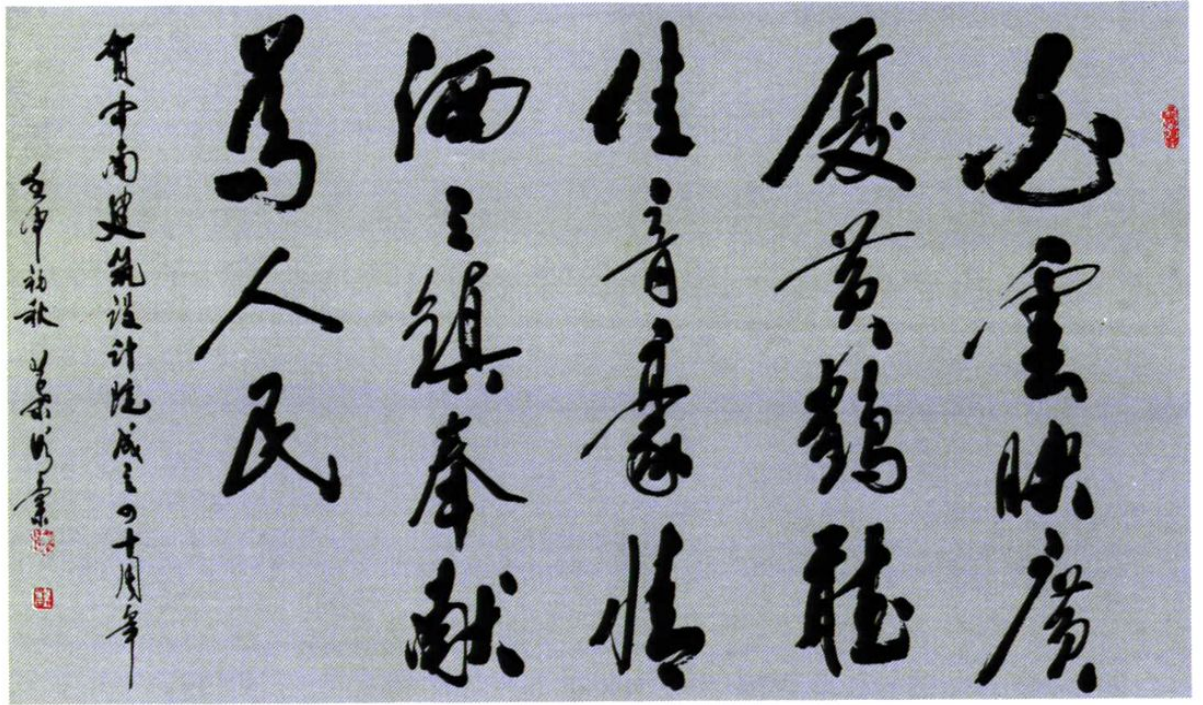 白雲映廣
廈黃鶴聽
佳音豪情
洒三鎮奉献
為人民
賀中南建筑设计院成立四十周年
壬申初秋